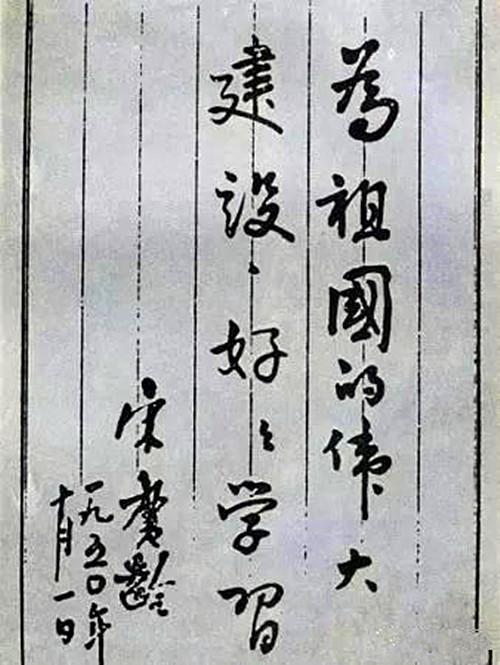 為祖國的偉大
建設、好々学習
宋慶齡
一九五〇年
十月一日